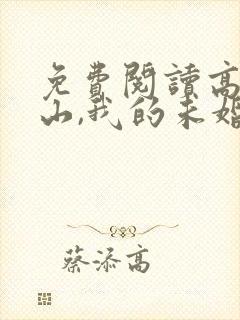 免費閱讀高
山,我的未婚
蔡添高